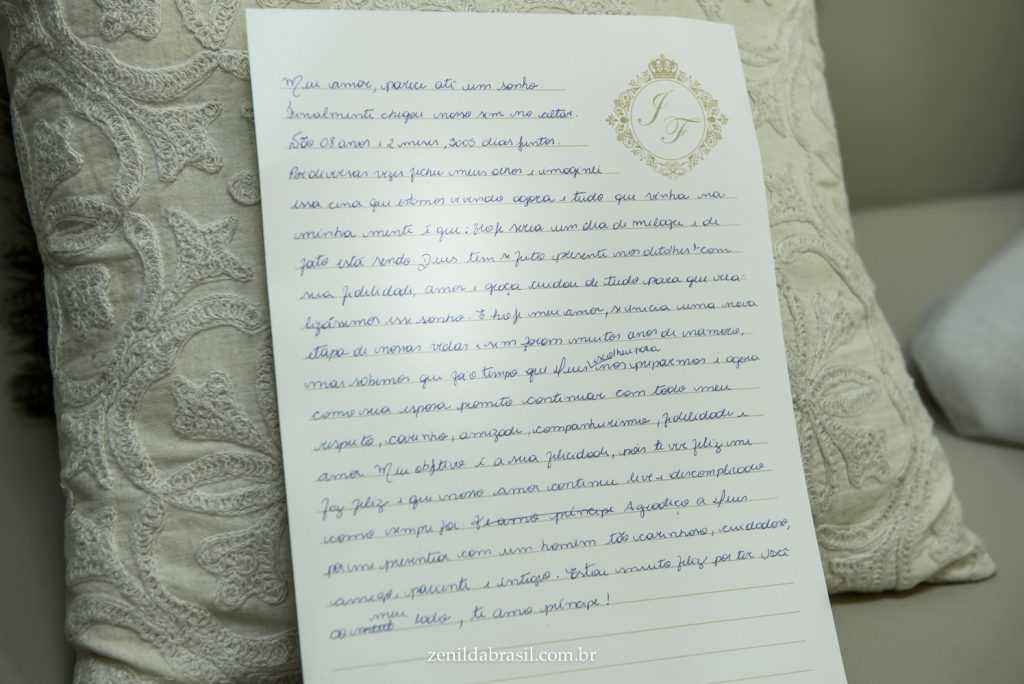 Meu amor, parece até um sonho
J F
Finalmente chegou nosso sim no altar.
São 08 anos e 2 meses, 3003 dias juntos.
Por diversas vezes fechei meus olhos e imaginei
essa cena que estamos vivendo agora e tudo que vinha na
minha mente é que: Hoje seria um dia de milagre e de
fato está sendo Deus tem se feito presente nos detalhes! com
sua fidelidade, amor e graça cuidou de tudo para que rea-
lizássemos esse sonho. E hoje meu amor, se inicia uma nova
etapa de nossas vidas e sim foram muitos anos de namoro,
mas sabemos que foi o tempo que Deus escolheu para nos preparmos e agora
como sua esposa prometo continuar com todo meu
respeito, carinho, amizade, companheirismo, fidelidade e
amor Meu objetivo é a sua felicidade, pois te ver feliz me
faz feliz e que nosso amor continue leve e descomplicado
como sempre foi Te amo príncipe Agradeço a Deus
por me presentear com um homem tão carinhoso, cuidadoso,
amigo, paciente e íntegro. Estou muito feliz por ter você
ao meu lado, te amo príncipe!
zenildabrasil.com.br